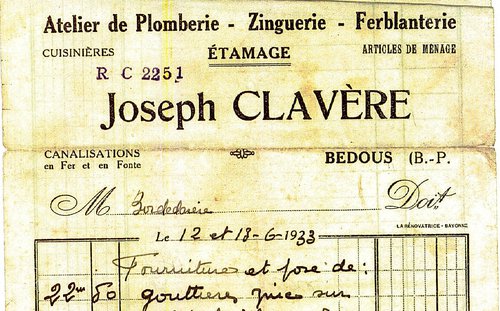 Atelier de Plomberie - Zinguerie - Ferblanterie
CUISINIÈRES ÉTAMAGE ARTICLES DE MÉNAGE
R C 2251
Joseph CLAVÈRE
CANALISATIONS
en Fer et en Fonte
BEDOUS (B.-P.
M Doit
LA RÉNOVATRICE - BAYONNE
Le 12 et 13-6-1933
Fournitures et pose de:
22m 50 gouttières zinc sur